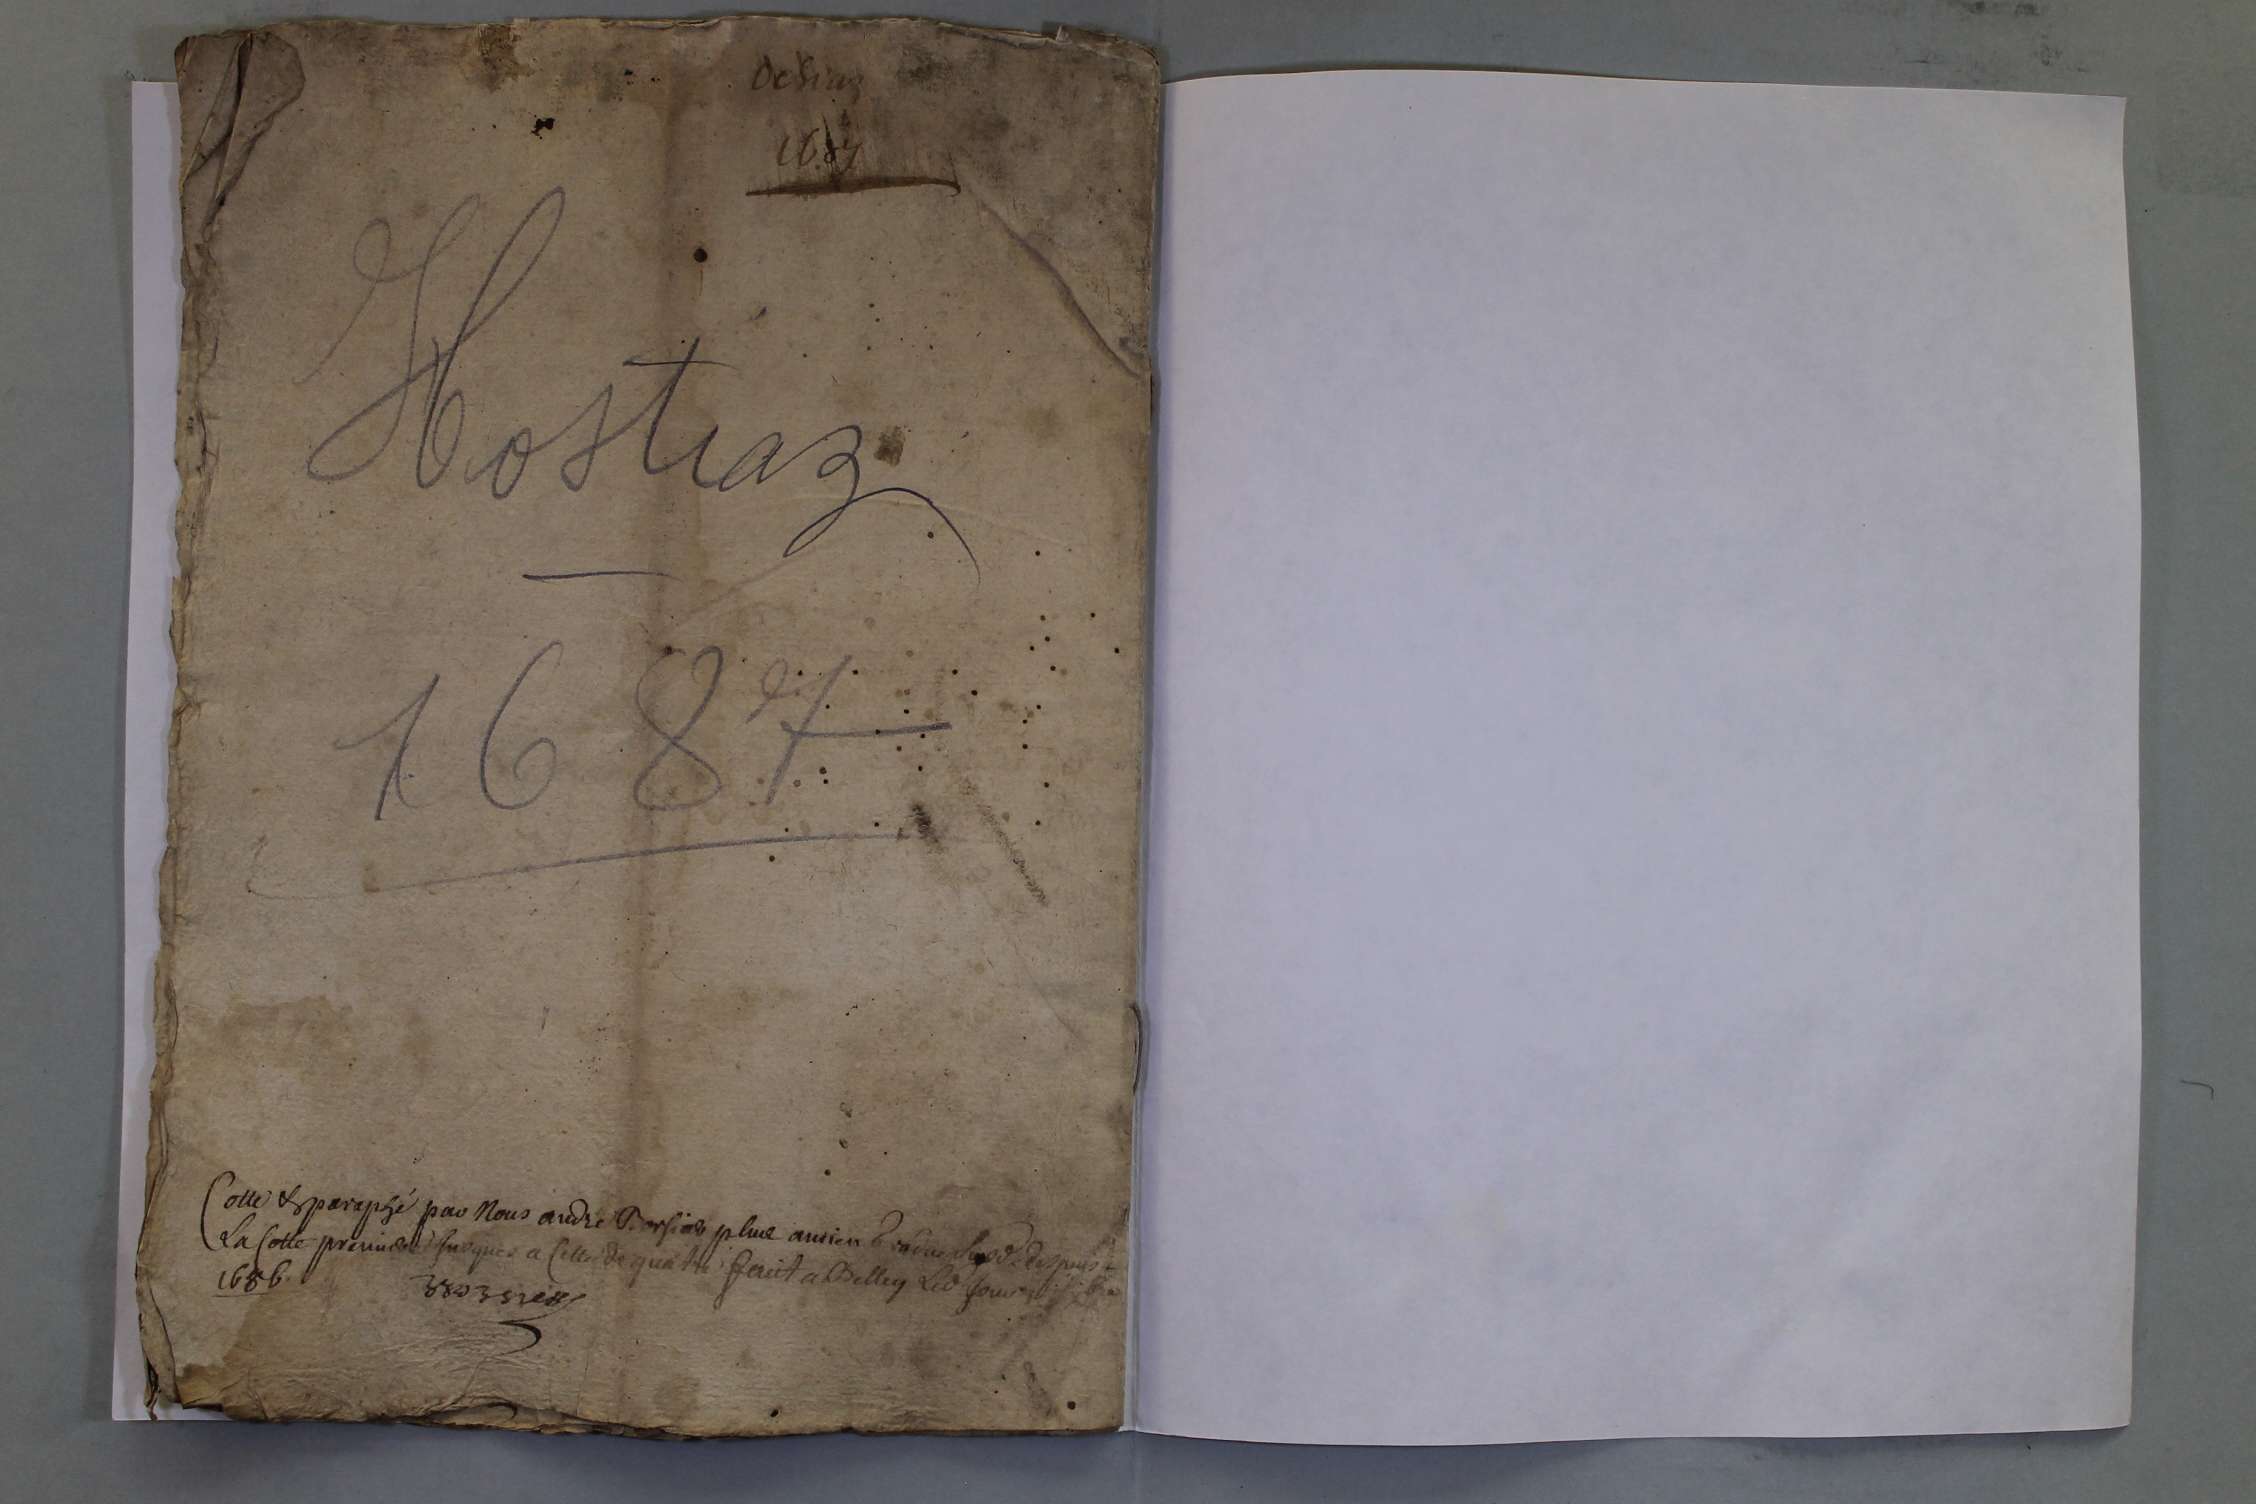 Ostiaz
1687
Hostiaz
1687
Cotté & paraphé par Nous andré plus ancien
La Cotte premiere Jusques a Celle de quatre fait a Belley Le
1686